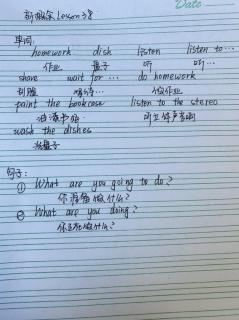 Date
新概念 Lesson 38
单词:
homework dish listen listen to...
作业 盘子 听 听...
shave wait for... do homework
刮脸 等待... 做作业
paint the bookcase listen to the stereo
油漆书橱 听立体声音响
wash the dishes
洗盘子
句子:
① What are you going to do?
你准备做什么?
② What are you doing?
你正在做什么?